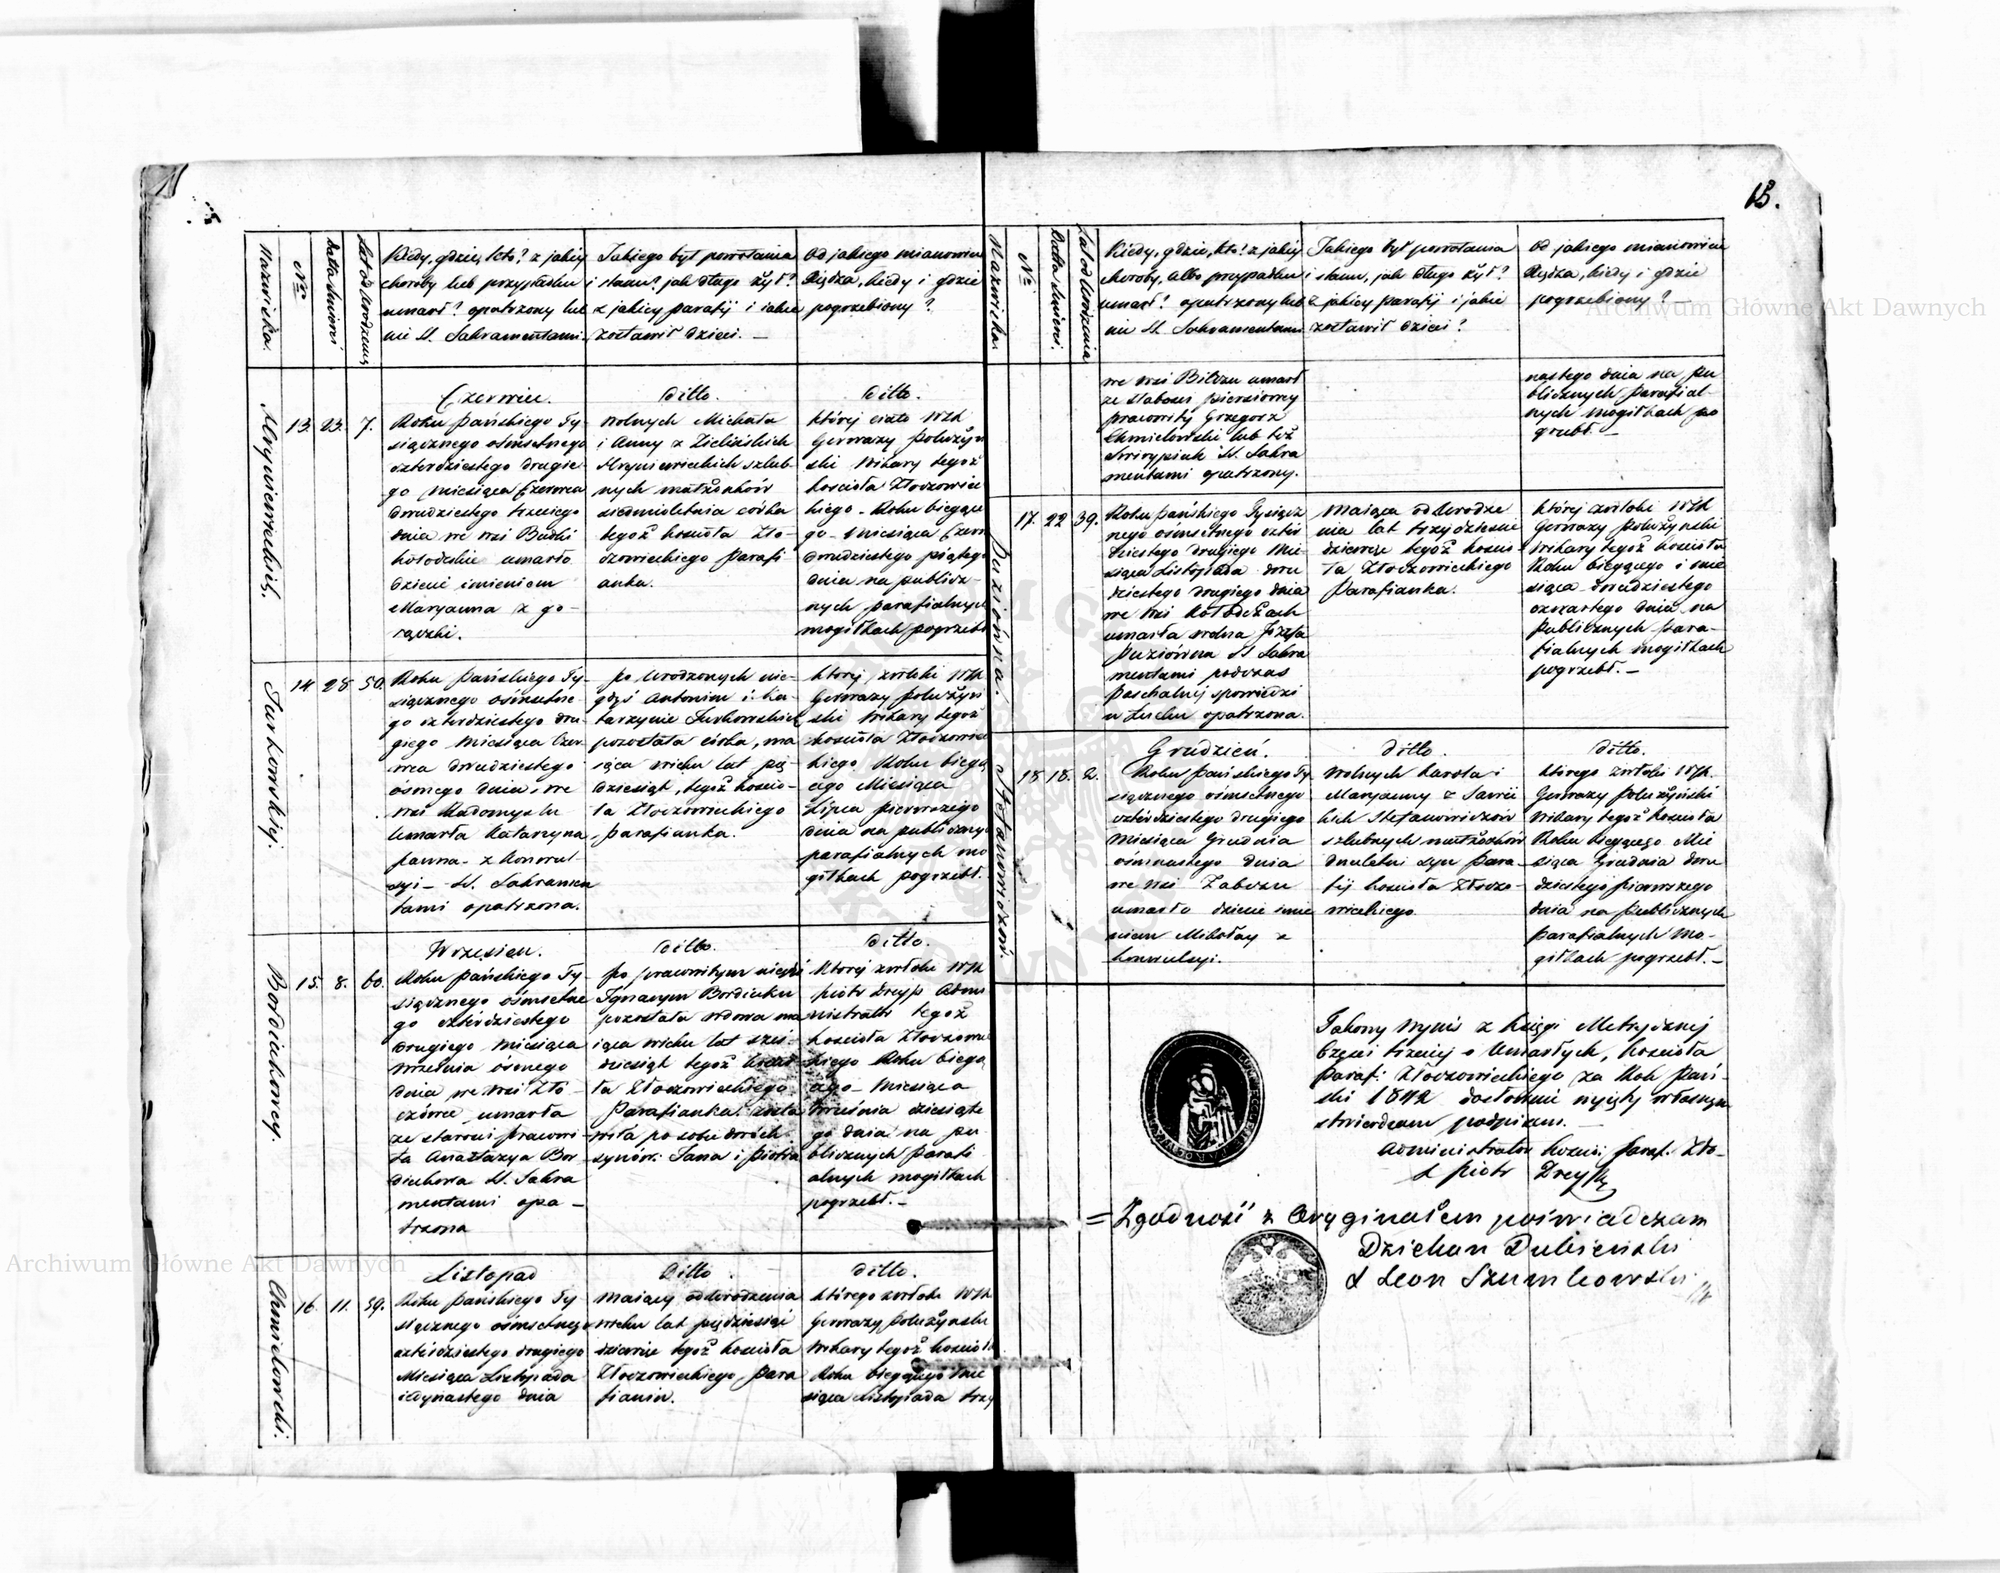 13.
Nazwiska.
Nro
Data śmierci
Lat od urodzenia
Kiedy, gdzie, kto? z jakiéj
choroby lub przypadku
umarł? opatrzony lub
nie St. Sakramentami.
Jakiego był powołania
i stanu? jak długo żył?
z jakiéj parafij i jakie
zostawił dzieci. —
Od jakiego mianowicie
Księdza, kiedy i gdzie
pogrzebiony?
Hryniewieckiéj.
13. 23. 7.
Czerwiec.
Roku Pańskiego Ty-
siącznego ośmsetnego
czterdziestego drugie-
go Miesiąca Czerwca
dwudziestego trzeciego
dnia we wsi Budki
kołodeskie umarło
dziecie imieniem
Maryanna z go-
rączki.
ditto.
wolnych Michała
i Anny z Zielińskich
Hryniewieckich szlub-
nych małżonków
siedmioletnia córka
tegoż koscioła Zło-
czowieckiego Parafi
anka.
ditto.
któréj ciało WJX
Gerwazy Połużyń
ski Wikary tegoż
kościoła Złoczowiec
kiego - Roku bieżące
go - Miesiąca Czerw
dwudziestego piątego
dnia na publicz-
nych parafialnych
mogiłkach pogrzebł
Turkowskiéj.
14 28 50.
Roku Pańskiego Ty-
siącznego ośmsetne-
go czterdziestego dru-
giego Miesiąca Czer-
wca dwudziestego
ósmego dnia, we
wsi Radomyslu
Umarła Katarzyna
panna - z konwul-
syi - St. Sakramen
tami opatrzona.
po Urodzonych nie-
gdyś Antonim i Ka-
tarzynie Turkowskich
pozostała córka, ma
iąca wieku lat pię
dziesiąt, tegoż koscio-
ła Złoczowieckiego
parafianka.
któréj zwłoki WJX
Gerwazy Połużyń
ski Wikary tegoż
kościoła Złoczowiec
kiego Roku bieżą
cego Miesiąca
Lipca pierwszego
dnia na publicznych
parafialnych mo
giłkach pogrzebł.
Bordiukowéj.
15. 8. 60.
Wrzesień.
Roku Pańskiego Ty-
siącznego ośmsetne
go czterdziestego
drugiego Miesiąca
Września ósmego
dnia we wsi Zło
czówce umarła
ze starosci pracowi-
ta Anastazya Bor
diukowa St. Sakra
mentami opa-
trzona
ditto.
po pracowitym niegdyś
Ignacym Bordiuku
pozostała wdowa ma
iąca wieku lat sześ-
dziesiąt tegoż kościo
ła Złoczowieckiego
Parafianka: zosta
wiła po sobie dwóch
synów: Jana i Piotra
ditto.
Któréj zwłoki WJX
Piotr Dreyss Admi
nistrator tegoż
kościoła Złoczowiec
kiego Roku bieżą
cego - Miesiąca
Września dziesiąte
go dnia na pu
blicznych parafi
alnych mogiłkach
pogrzebł. —
Chmielowski.
16. 11. 59.
Listopad
Roku Pańskiego Ty
siącznego ośmsetnego
czterdziestego drugiego
Miesiąca Listopada
iedynastego dnia
ditto.
Maiący od Urodzenia
wieku lat pięćdziesiąt
dziewięć tegoż kościoła
Złoczowieckiego, Para
fianin.
ditto.
którego zwłoki WJX
Gerwazy Połużyński
Wikary tegoż kościoła
Roku bieżącego Mie
siąca Listopada trzy
Nazwiska.
Nro
Data śmierci.
Lat od Urodzenia
Kiedy, gdzie, kto? z jakiéj
choroby, albo przypadku
umarł? opatrzony lub
nie St. Sakramentami
Jakiego był powołania
i stanu, jak długo żył?
z jakiéj Parafij i jakie
zostawił dzieci?
Od jakiego mianowicie
Księdza, kiedy i gdzie
pogrzebiony? —
we wsi Bilczu umarł
ze słabości piersiowey
pracowity Grzegorz
Chmielowski lub też
St. Sakra
mentami opatrzony.
nastego dnia na pu
blicznych Parafial-
nych mogiłkach po
grzebł. —
Puziówna.
17. 22 39.
Roku Pańskiego Tysiącz
nego ośmsetnego czter
dziestego drugiego Mie-
siąca Listopada dwu
dziestego drugiego dnia
we wsi Kołodeżach
umarła wolna Józefa
Puziówna St Sakra
mentami podczas
paschalnéj spowiedzi
w Łucku opatrzona.
Maiąca od Urodze
nia lat trzydzieście
dziewięć tegoż kościo
ła Złoczowieckiego
Parafianka.
któréj zwłoki WJX
Gerwazy Połużyński
Wikary tegoż kościoła
Roku bieżącego i mie
siąca dwudziestego
czwartego dnia na
publicznych para-
fialnych mogiłkach
pogrzebł. —
Stefanowiczów.
18 18. 2.
Grudzień.
Roku Pańskiego Ty
siącznego ośmsetnego
czterdziestego drugiego
Miesiąca Grudnia
ośmnastego dnia
we wsi Zabczu
umarło dziecie imie
niem Mikołay z
konwulsyi.
ditto.
wolnych Karola i
Maryanny z Sawic
kich Stefanowiczów
szlubnych małżonków
dwuletni syn Para-
fij kościoła Złoczo-
wieckiego.
ditto.
którego zwłoki WJX.
Gerwazy Połużyński
Wikary tegoż kościoła
Roku bieżącego Mie
siąca Grudnia dwu
dziestego pierwszego
dnia na publicznych
Parafialnych Mo-
giłkach pogrzebł. —
Takowy Wypis z Księgi Metrycznéj
Części trzeciéj o Umarłych, kościoła
Paraf: Złoczowieckiego za Rok Pań-
ski 1842 dosłownie wyięty własnym
stwierdzam podpisem. —
Administrator kościo: Paraf. Zło-
X Piotr Dreyss
= Zgodność z Oryginałem poświadczam
Dziekan Dubieński
X Leon Szumkowski
Archiwum Główne Akt Dawnych
Archiwum Główne Akt Dawnych